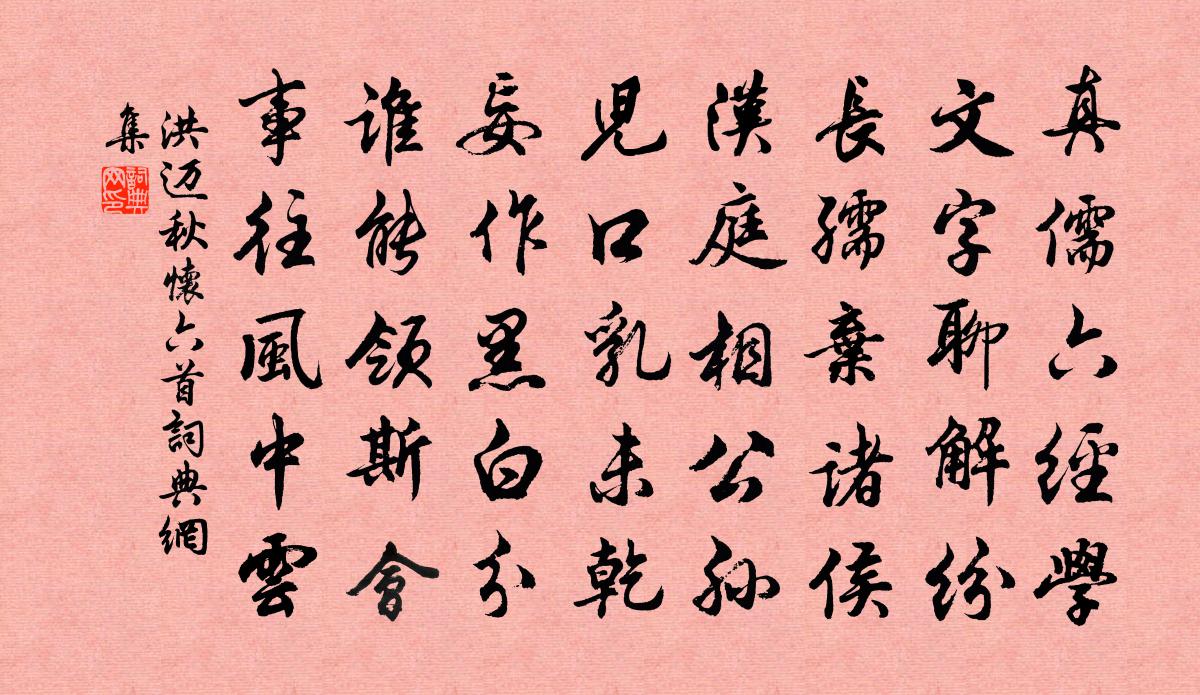 真儒六經學
文字聊解紛
長孺棄諸侯
漢庭相公孫
兒口乳未乾
妄作黑白分
誰能領斯會
事往風中雲
洪迈秋懷六首詞典網
集
詞典網印